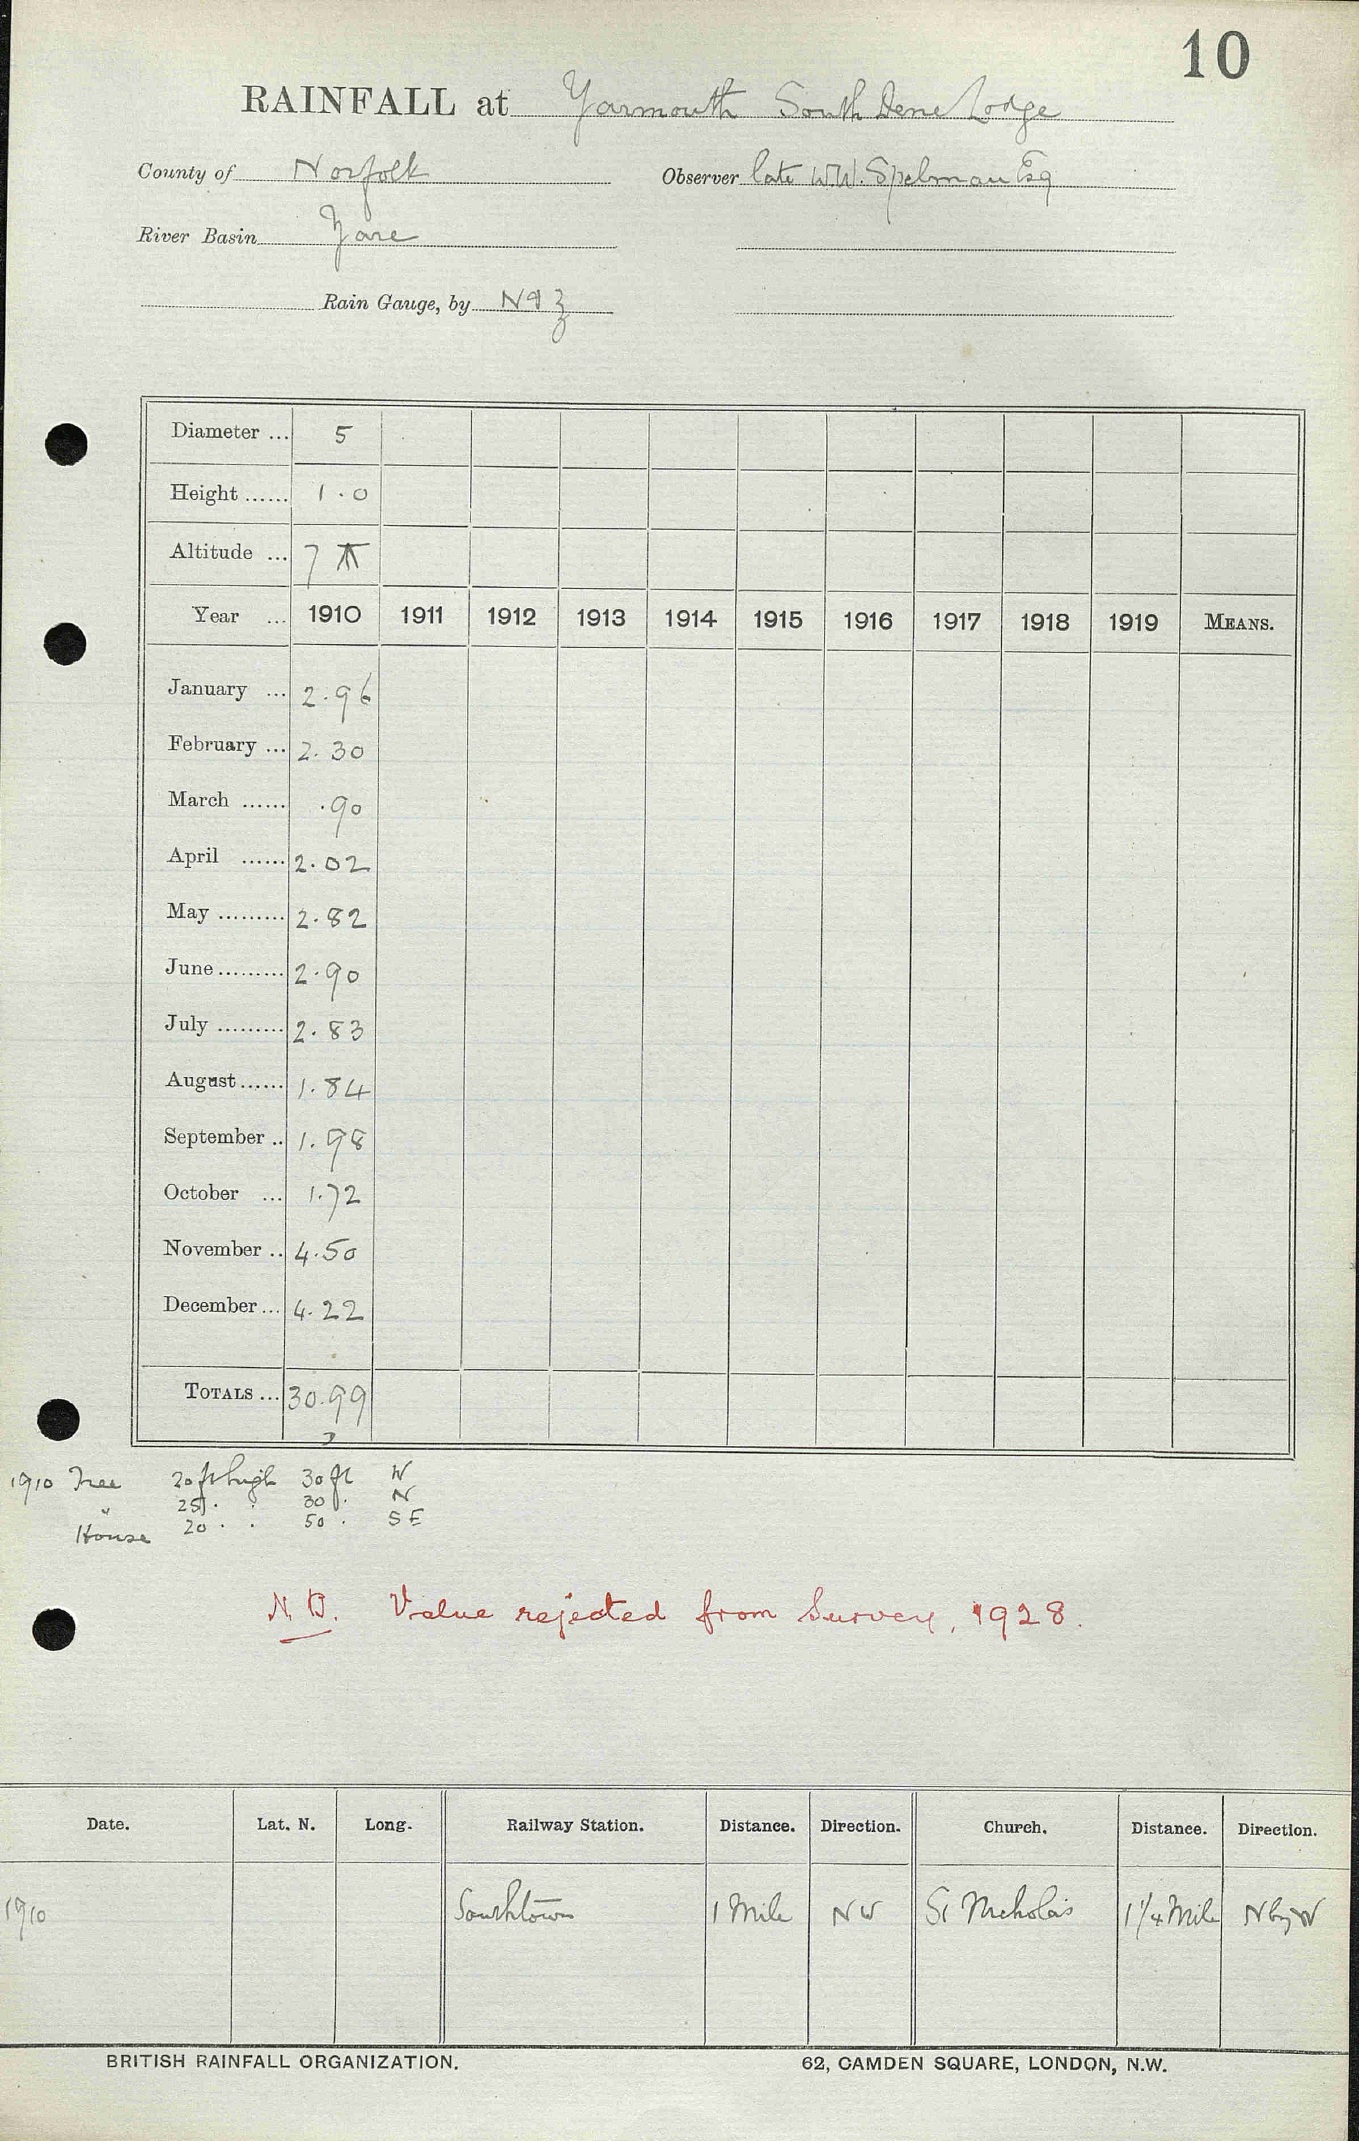 10
RAINFALL at Yarmouth South Dene Lodge
County of Norfolk Observer late W.W. Spelman Esq
River Basin Yare
Rain Gauge, by N & Z
Diameter ... 5
Height ...... 1.0
Altitude ... 7
Year ... 1910 1911 1912 1913 1914 1915 1916 1917 1918 1919 MEANS.
January ... 2.96
February ... 2.30
March ...... .90
April ...... 2.02
May ......... 2.82
June ......... 2.90
July ......... 2.83
August ...... 1.84
September .. 1.98
October ... 1.72
November .. 4.50
December ... 4.22
TOTALS ... 30.99
1910 Tree 20 ft high 30 ft W
" 25 . . 30 . N
House 20 . . 50 . SE
N.B. Value rejected from Survey, 1928.
Date. Lat. N. Long. Railway Station. Distance. Direction. Church. Distance. Direction.
1910 Southtown 1 Mile NW St Nicholas 1¼ Mile N by W
BRITISH RAINFALL ORGANIZATION. 62, CAMDEN SQUARE, LONDON, N.W.